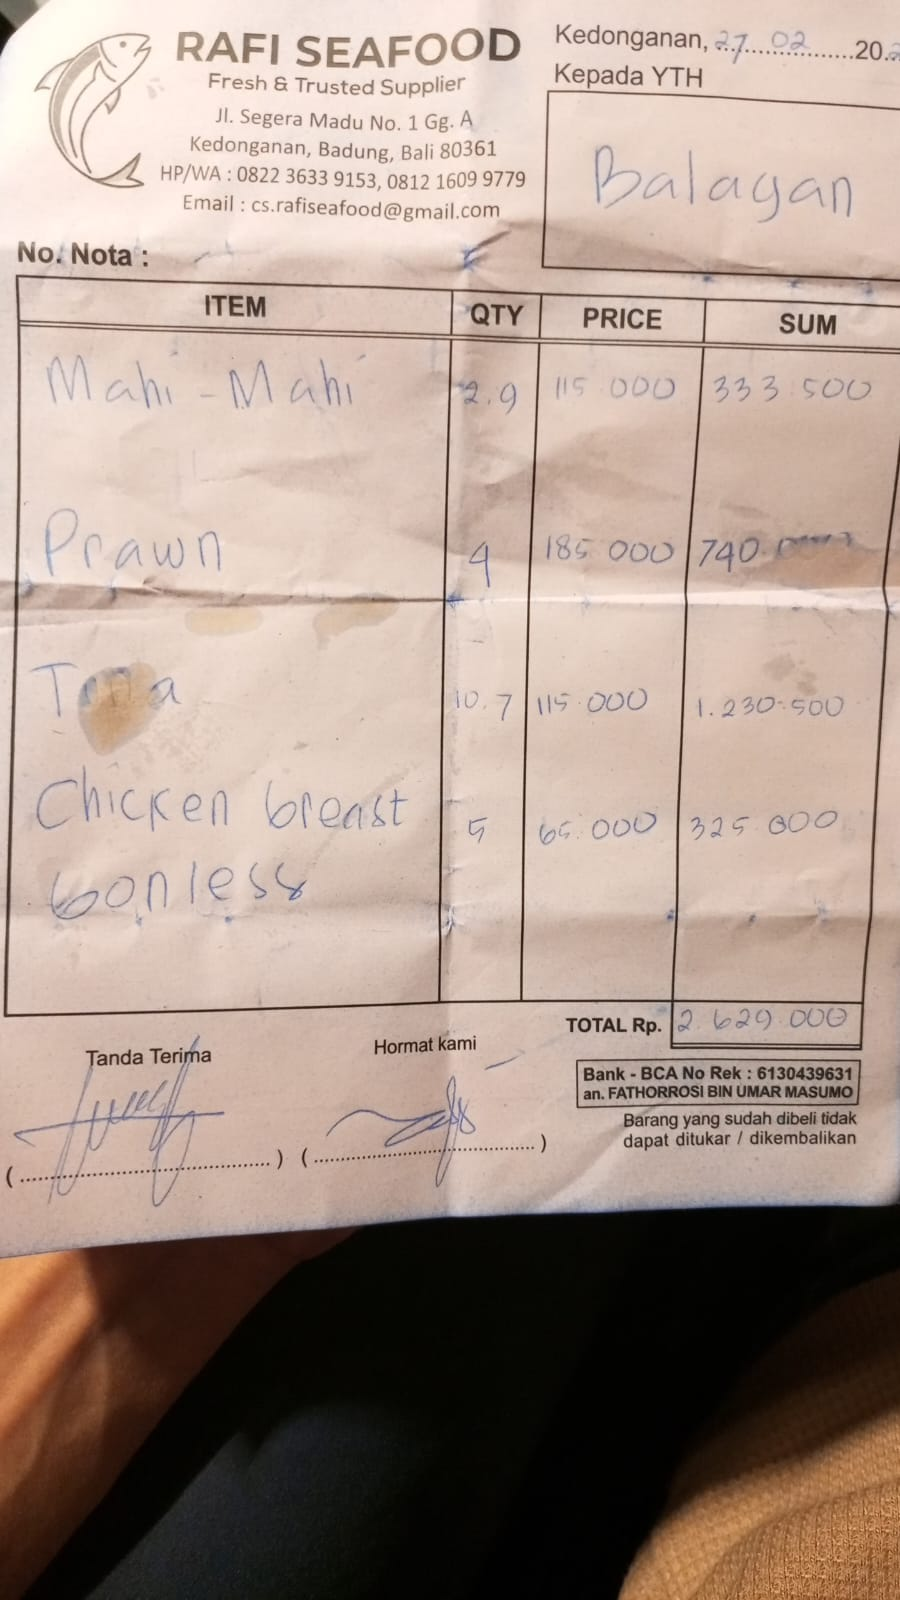 RAFI SEAFOOD
Fresh & Trusted Supplier
Jl. Segera Madu No. 1 Gg. A
Kedonganan, Badung, Bali 80361
HP/WA : 0822 3633 9153, 0812 1609 9779
Email : cs.rafiseafood@gmail.com
Kedonganan, 27 02 20.
Kepada YTH
Balagan
No. Nota :
ITEM QTY PRICE SUM
Mahi-Mahi 2.9 115.000 333.500
Prawn 4 185 000 740.
10.7 115.000 1.230.500
Chicken breast 5 65.000 325.000
bonless
TOTAL Rp. 2.629.000
Tanda Terima
Hormat kami
Bank - BCA No Rek : 6130439631
an. FATHORROSI BIN UMAR MASUMO
Barang yang sudah dibeli tidak
dapat ditukar / dikembalikan